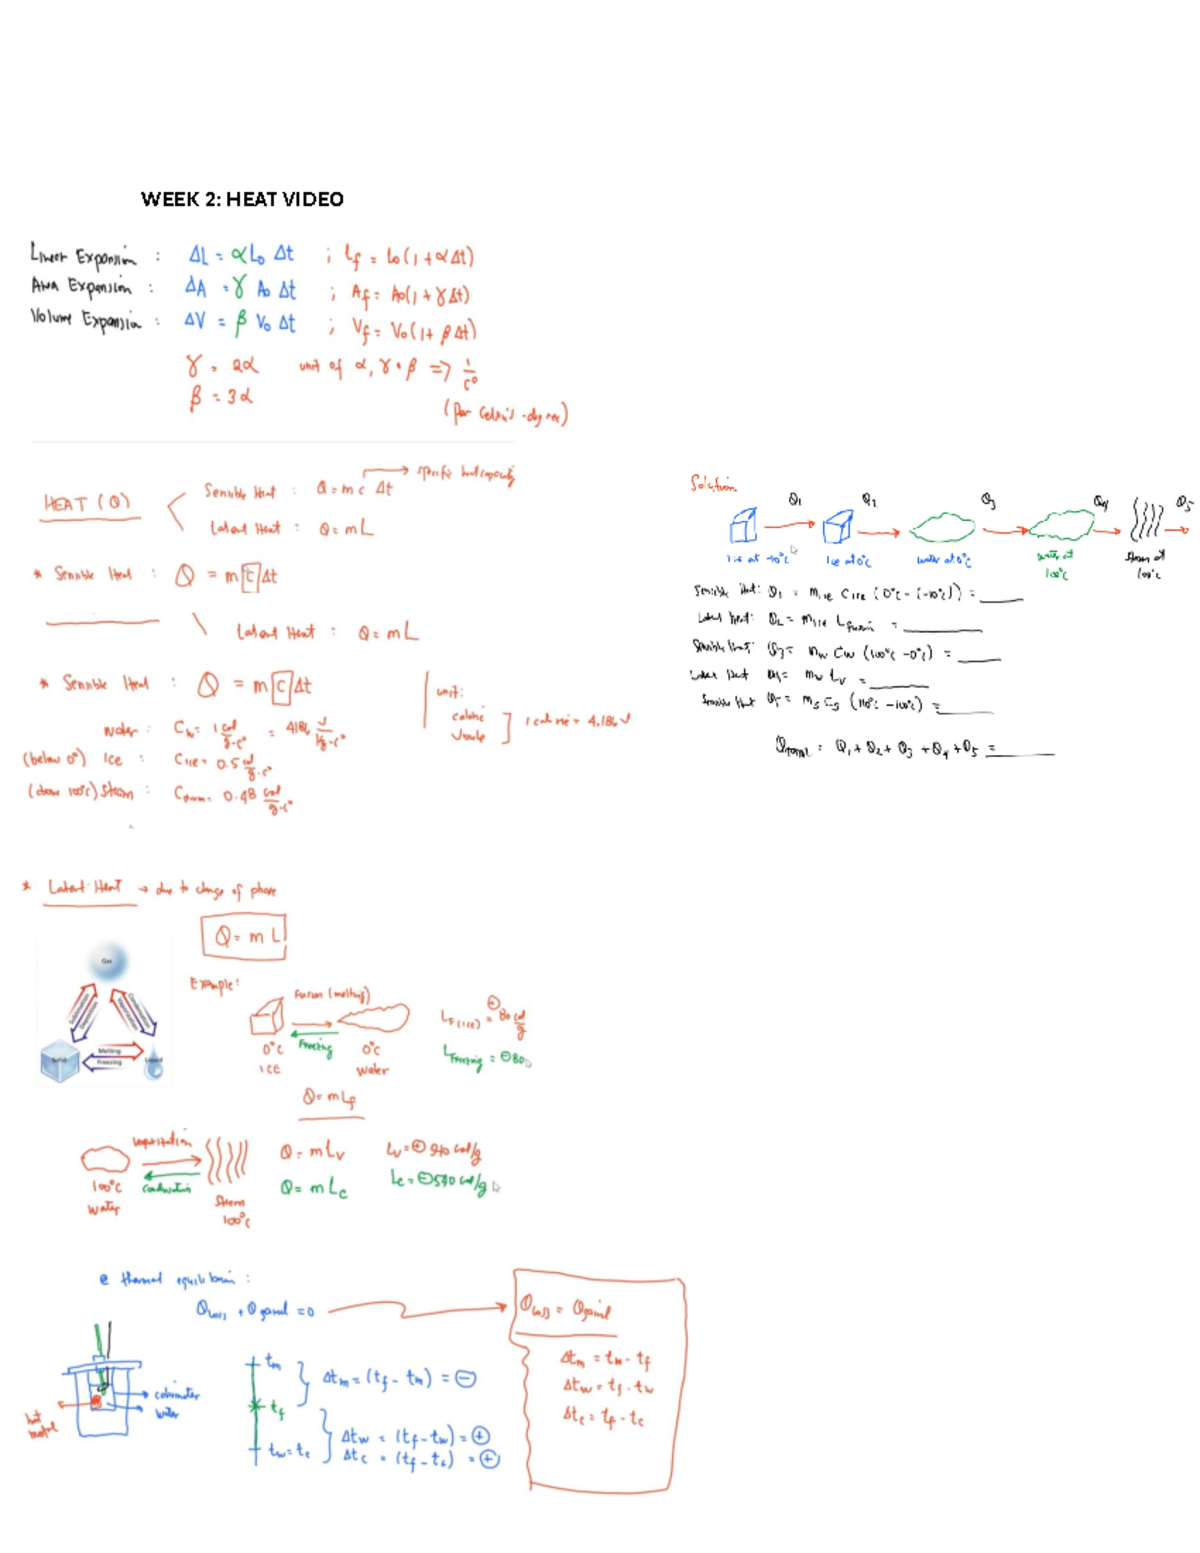 WEEK 2: HEAT VIDEO
Linear Expansion : ΔL = αL₀ Δt ; Lf = L₀(1 + αΔt)
Area Expansion : ΔA = γ A₀ Δt ; Af = A₀(1 + γΔt)
Volume Expansion : ΔV = β V₀ Δt ; Vf = V₀(1 + βΔt)
γ = 2α unit of α, γ & β => 1/C°
β = 3α
(per Celsius-degree)
HEAT (Q)
Sensible Heat : Q = m c Δt → specific heat capacity
Latent Heat : Q = mL
* Sensible Heat : Q = m c Δt
Latent Heat : Q = mL
* Sensible Heat : Q = m c Δt
unit:
calorie
Joule
1 calorie = 4.186 J
Water : Cw = 1 cal/g-C° = 4186 J/kg-C°
(below 0°) Ice : Cice = 0.5 cal/g-C°
(above 100°C) Steam : Csteam = 0.48 cal/g-C°
* Latent Heat → due to change of phase
Q = m L
Gas
Sublimation
Deposition
Condensation
Vaporization
Melting
Freezing
Solid
Liquid
Example:
Fusion (melting)
Freezing
0°C
ICE
0°C
Water
LF(ice) = ⊕80 cal/g
LFreezing = ⊖80
Q = mLf
vaporization
condensation
100°C
Water
Steam
100°C
Q = mLv Lv = ⊕540 cal/g
Q = mLc Lc = ⊖540 cal/g
@ thermal equilibrium :
Qloss + Qgained = 0
Qloss = Qgained
Δtm = tm - tf
Δtw = tf - tw
Δtc = tf - tc
hot metal
calorimeter
water
tm
tf
tw = tc
Δtm = (tf - tm) = ⊖
Δtw = (tf - tw) = ⊕
Δtc = (tf - tc) = ⊕
Solution
Q1 Q2 Q3 Q4 Q5
Ice at -10°C
Ice at 0°C
water at 0°C
water at 100°C
steam at 100°C
Sensible Heat: Q1 = mice Cice (0°C - (-10°C)) = ____
Latent Heat: Q2 = mice Lfusion = ____
Sensible Heat: Q3 = mw Cw (100°C - 0°C) = ____
Latent Heat Q4 = mw Lv = ____
Sensible Heat Q5 = ms Cs (110°C - 100°C) = ____
QTOTAL = Q1 + Q2 + Q3 + Q4 + Q5 = ____